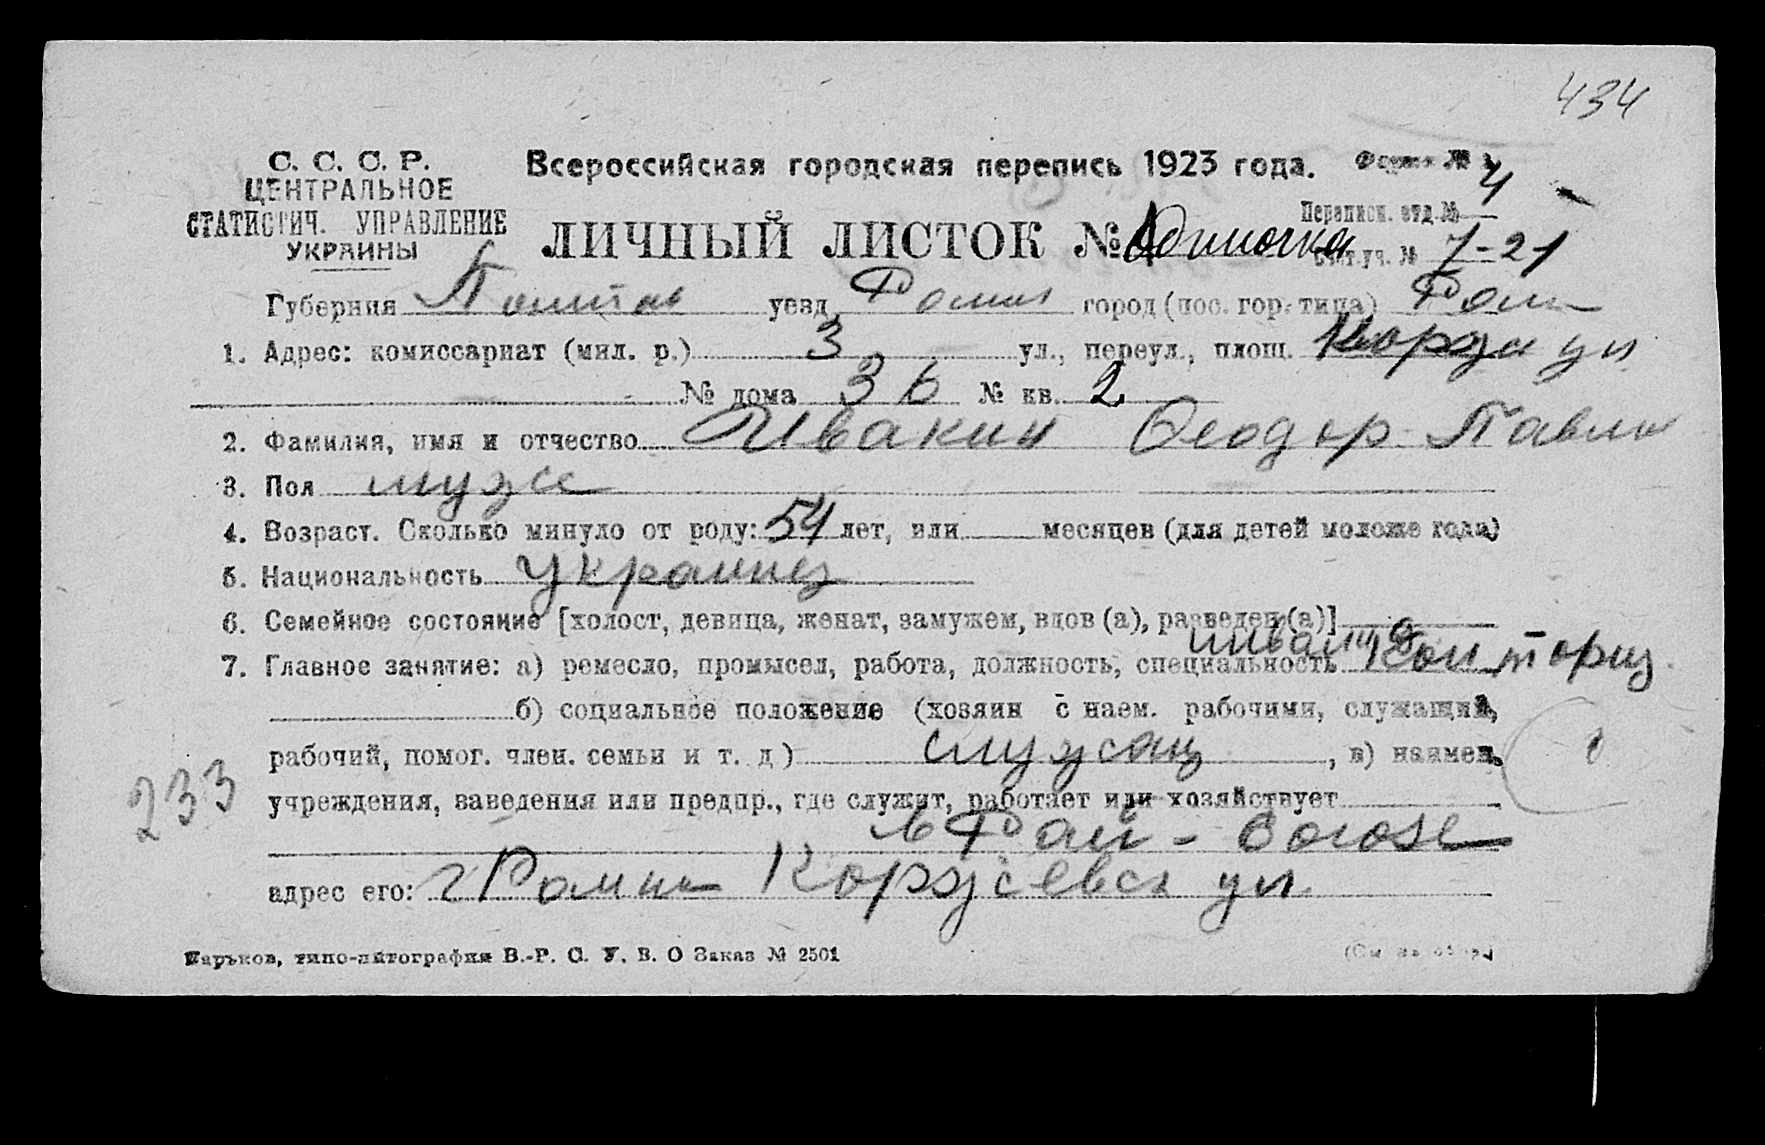 434
С. С. С. Р.
ЦЕНТРАЛЬНОЕ
СТАТИСТИЧ. УПРАВЛЕНИЕ
УКРАИНЫ
Всероссийская городская перепись 1923 года. Форма № 4
ЛИЧНЫЙ ЛИСТОК № Одиночка
Переписн. отд. №
Счет. уч. № 7-21
Губерния Полтав уезд Ромн город (пос. гор. типа) Ромн
1. Адрес: комиссариат (мил. р.) 3 ул., переул., площ. Корж ул
№ дома 36 № кв. 2
2. Фамилия, имя и отчество Ивакин Феодор Павлов
3. Пол мужс
4. Возраст. Сколько минуло от роду: 54 лет, или месяцев (для детей моложе года)
5. Национальность украинец
6. Семейное состояние [холост, девица, женат, замужем, вдов (а), разведен (а)]
7. Главное занятие: а) ремесло, промысел, работа, должность, специальность Конторщ
б) социальное положение (хозяин с наем. рабочими, служащий,
рабочий, помог. член. семьи и т. д) служащ, в) наимен.
учреждения, заведения или предпр., где служит, работает или хозяйствует
в Рай-Союзе
адрес его: г Ромны Коржевск ул
233
Харьков, типо-литография В.-Р. С. У. В. О Заказ № 2501
(См на обор.)